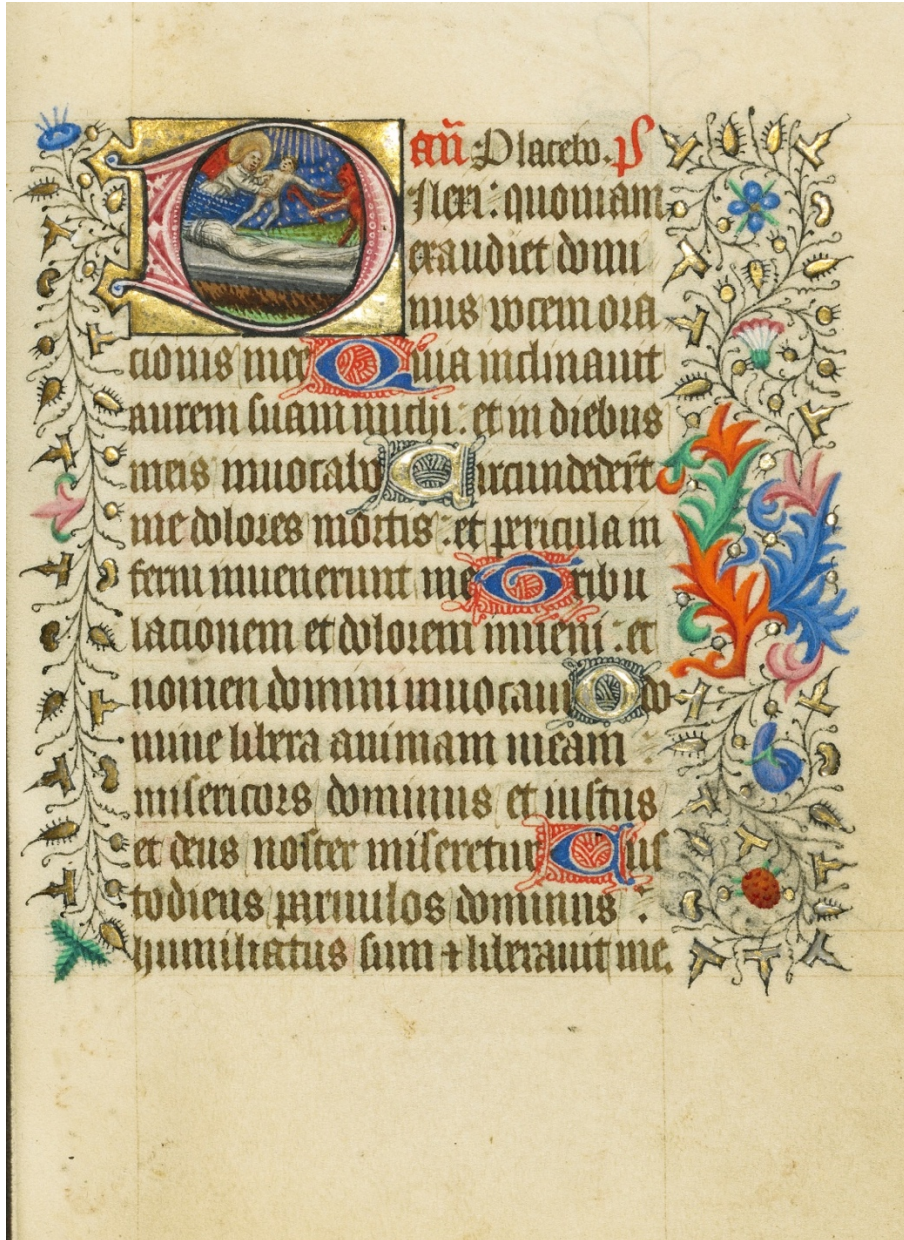 D añ Placebo. ps
ilexi: quoniam
exaudiet domi
nus vocem ora
cionis mee Quia inclinauit
aurem suam michi: et in diebus
meis inuocabo Circundederūt
me dolores mortis: et pericula in
ferni inuenerunt me Tribu
lacionem et dolorem inueni: et
nomen domini inuocaui O do
mine libera animam meam :
misericors dominus et iustus
et deus noster miseretur Cus
todiens paruulos dominus :
humiliatus sum ⁊ liberauit me.